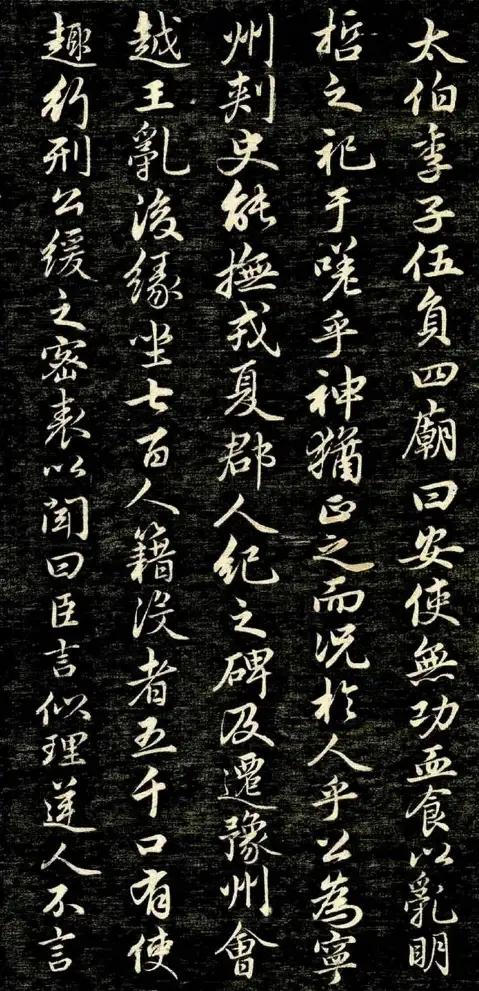 太伯季子伍員四廟曰安使無功血食以亂明
哲之祀于嗟乎神猶正之而況於人乎公為寧
州刺史能撫戎夏郡人紀之碑及遷豫州會
越王亂後緣坐七百人籍沒者五千口有使
趣行刑公緩之密表以聞曰臣言似理逆人不言